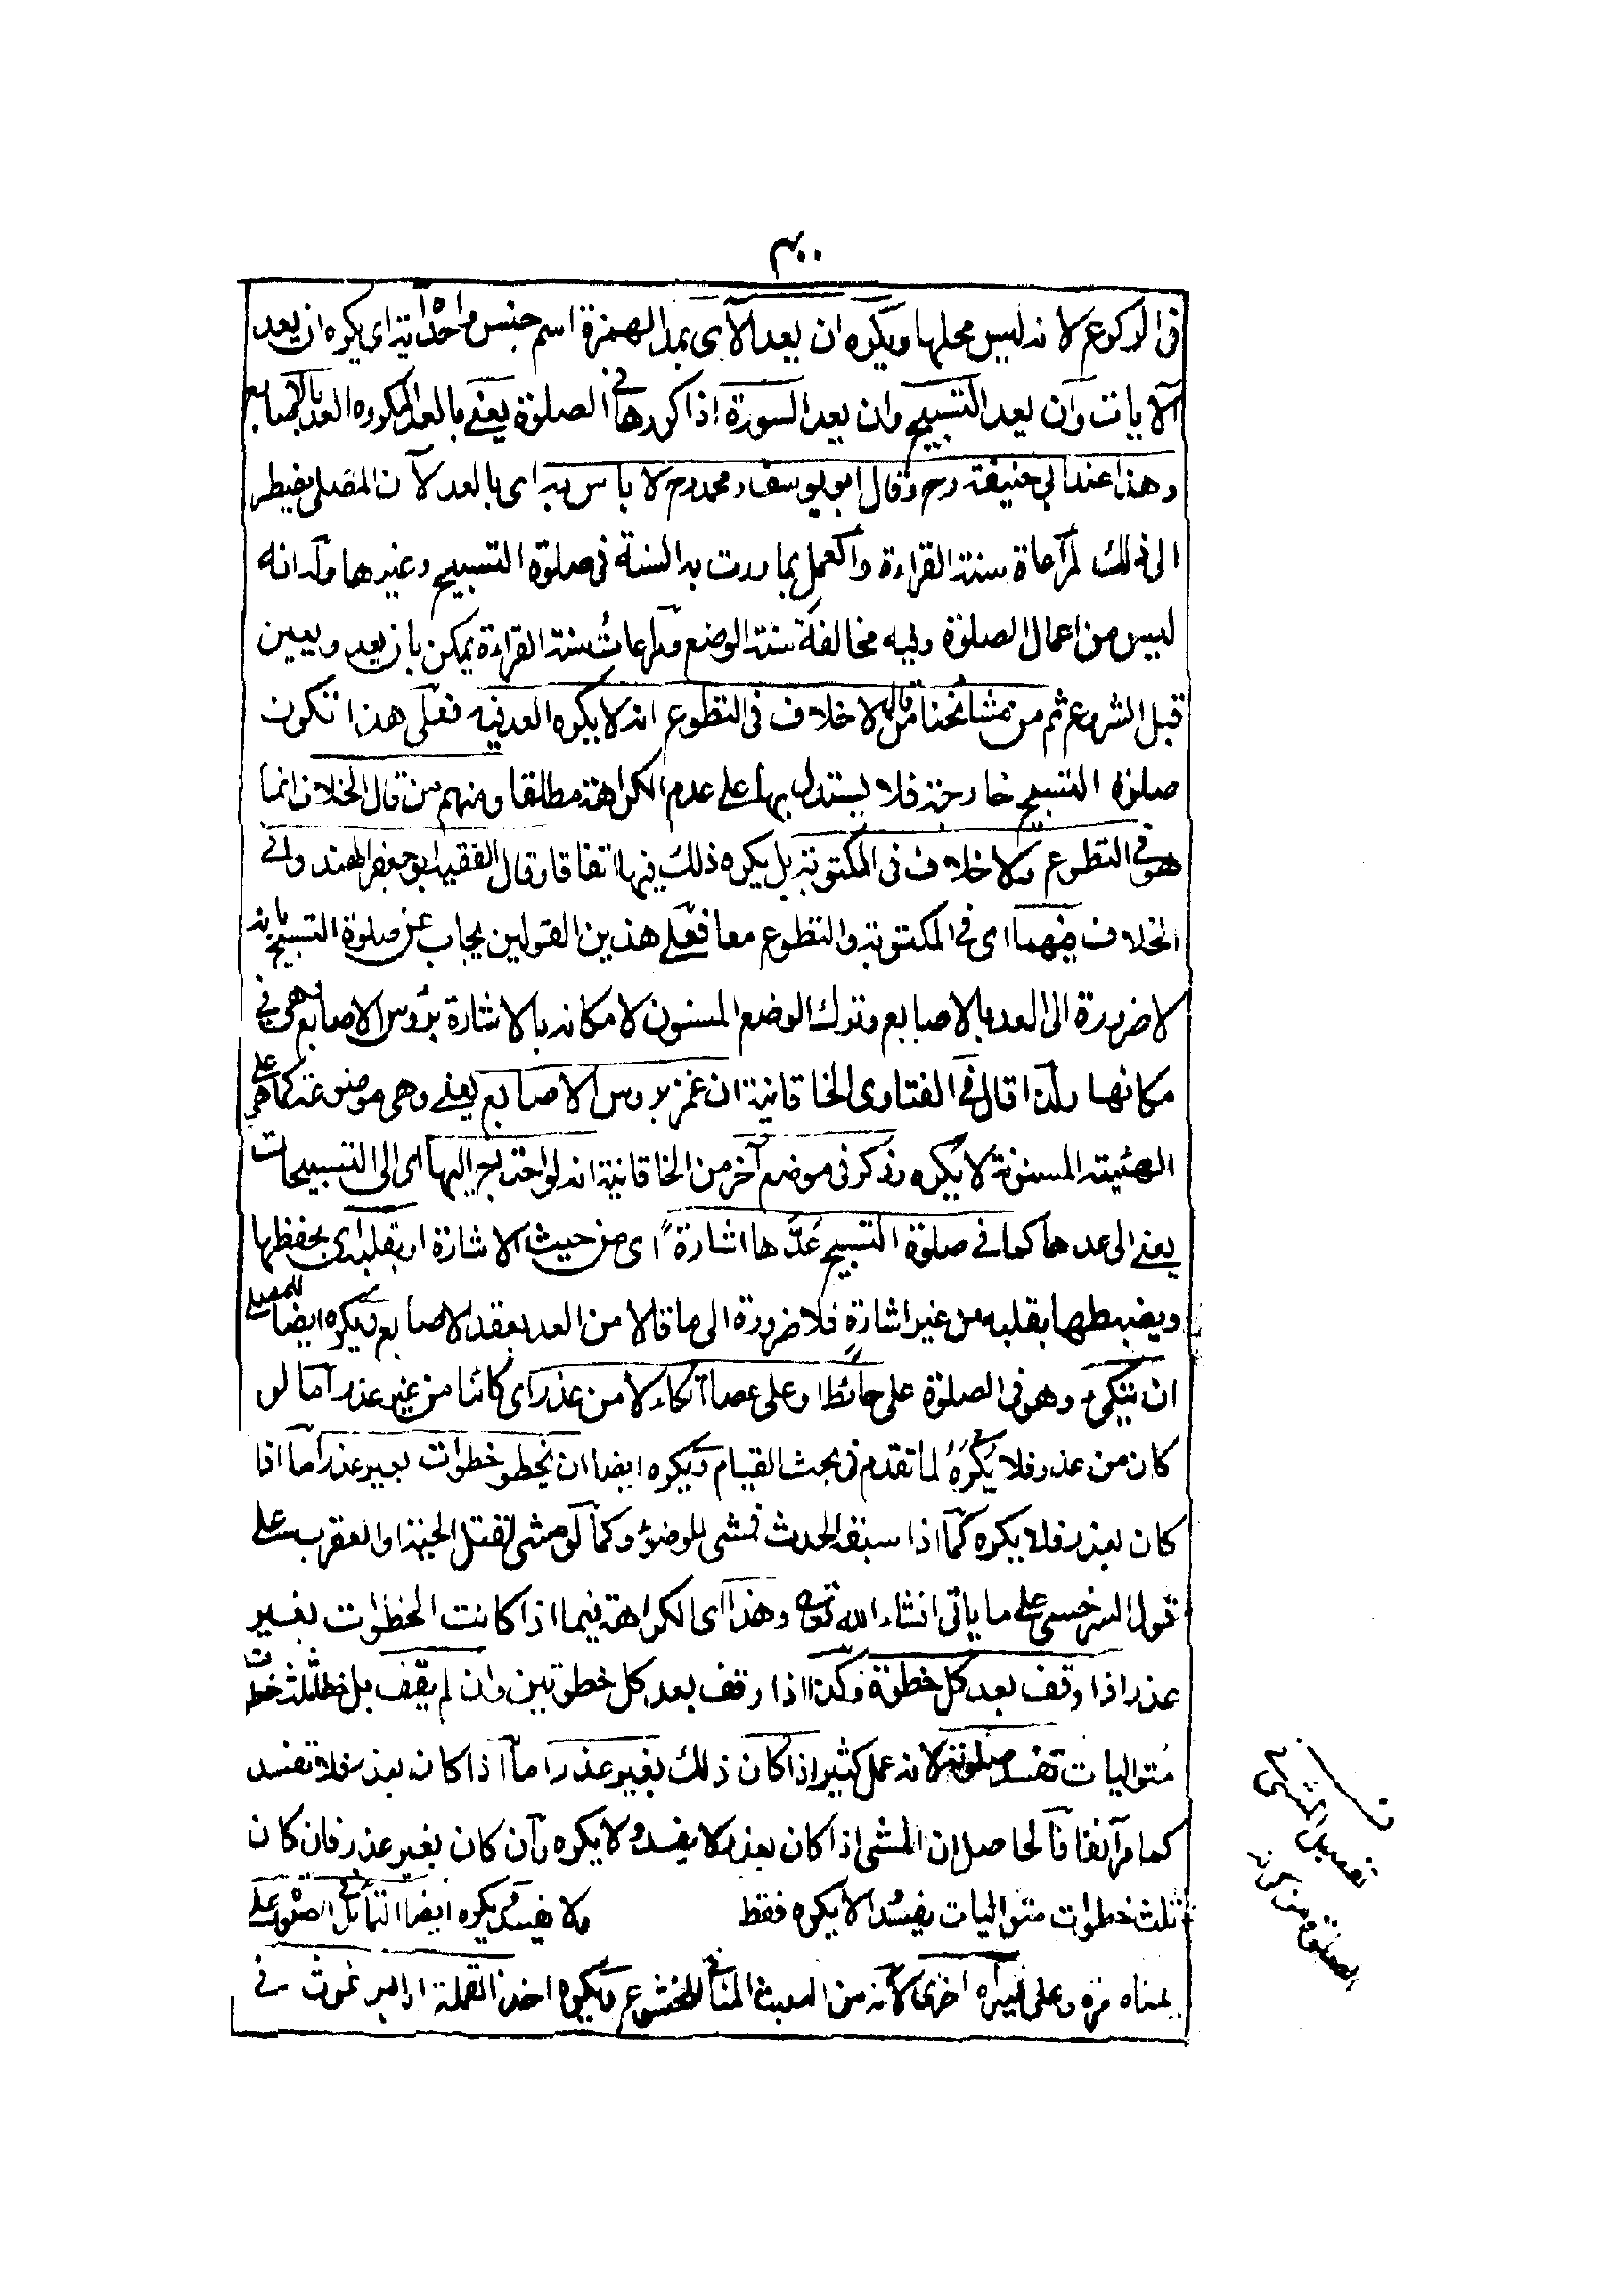 ٣٠٠
فى الركوع لانه ليس محلها ويكره ان يعد الآى بمد الهمزة اسم جنس واحده آية اى يكره ان يعد
الآيات وان يعد التسبيح وان يعد السورة اذا كررها فى الصلوة يعنى بالعد المكروه العد بالاصابع
وهذا عند ابى حنيفة رح وقال ابو يوسف ومحمد رح لا باس به اى بالعد لان المصلى يضطر
الى ذلك لمراعاة سنة القراءة والعمل بما وردت به السنة فى صلوة التسبيح وغيرها وله انه
ليس من اعمال الصلوة وفيه مخالفة سنة الوضع ومراعات سنة القراءة يمكن بان يعد ويعين
قبل الشروع ثم من مشائخنا من قال لا خلاف فى التطوع انه لا يكره العد فيه فعلى هذا تكون
صلوة التسبيح خارجة فلا يستدل بها على عدم الكراهة مطلقا ومنهم من قال الخلاف انما
هو فى التطوع ولا خلاف فى المكتوبة بل يكره ذلك فيها اتفاقا وقال الفقيه ابو جعفر الهندوانى
الخلاف فيهما اى فى المكتوبة والتطوع معا فعلى هذين القولين يجاب عن صلوة التسبيح بانه
لا ضرورة الى العد بالاصابع وترك الوضع المسنون لامكانه بالاشارة برؤس الاصابع وهى فى
مكانها ولذا قال فى الفتاوى الخاقانية ان غمز برؤس الاصابع يعنى وهى موضوعة كما هى على
الهئية المسنونة لا يكره وذكر فى موضع آخر من الخاقانية انه لو احتيج اليها اى الى التسبيحات
يعنى الى عدها كما فى صلوة التسبيح عدّها اشارةً اى من حيث الاشارة او بقلبه اى يحفظها
ويضبطها بقلبه من غير اشارة فلا ضرورة الى ما قالا من العد بعقد الاصابع ويكره ايضا للمصلى
ان يتكىء وهو فى الصلوة على حائط او على عصا اتكاء لا من عذر اى كائنا من غير عذر اما لو
كان من عذر فلا يكره لما تقدم فى بحث القيام ويكره ايضا ان يخطو خطوات بغير عذر اما اذا
كان بعذر فلا يكره كما اذا سبقه الحدث فمشى للوضوء وكما لو مشى لقتل الحية او العقرب على
قول السرخسى على ما ياتى انشاء الله تعالى وهذا اى الكراهة فيما اذا كانت الخطوات بغير
عذر اذا وقف بعد كل خطوة وكذا اذا وقف بعد كل خطوتين وان لم يقف بل خطا ثلث خطوات
متواليات تفسد صلوته لانه عمل كثير اذا كان ذلك بغير عذر اما اذا كان بعذر فلا تفسد
كما مر آنفا فالحاصل ان المشى اذا كان بعذر لا يفسد ولا يكره وان كان بغير عذر فان كان
ثلث خطوات متواليات يفسد والا يكره فقط ولا يفسد ويكره ايضا التمايل فى الصلوة على
يمناه مرة وعلى يسراه اخرى لانه من العبث المنافى للخشوع ويكره اخذ القملة او البرغوث فى
تفصيل المشى
الصلوة من كونه